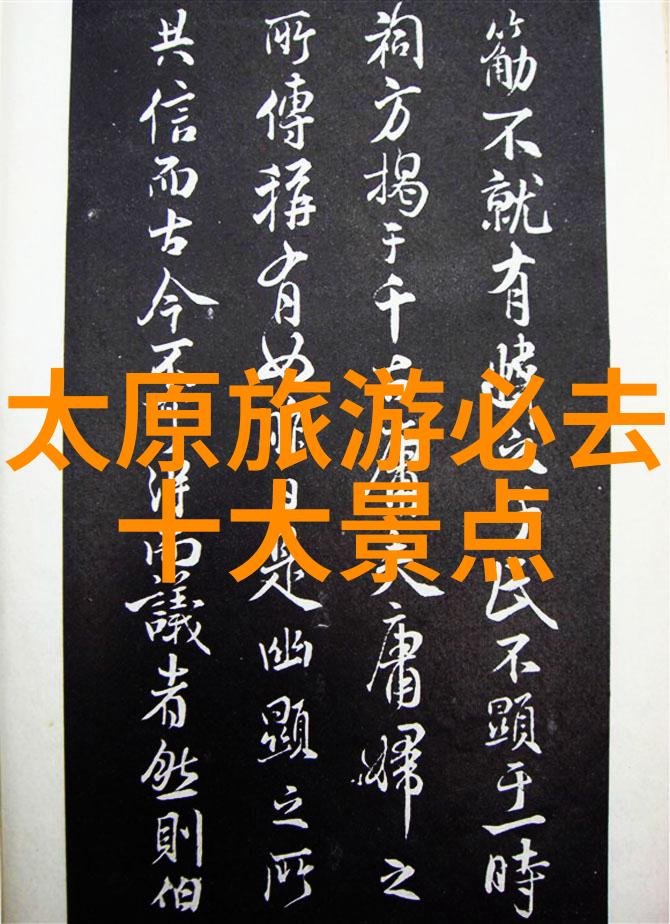 太原旅游必去
十大景点
不就有之氏不顯于一時
祠方揭于千古庸夫庸婦之
所傳稱有如昨日是幽顯之所
共信而古今不得而議者然則伯